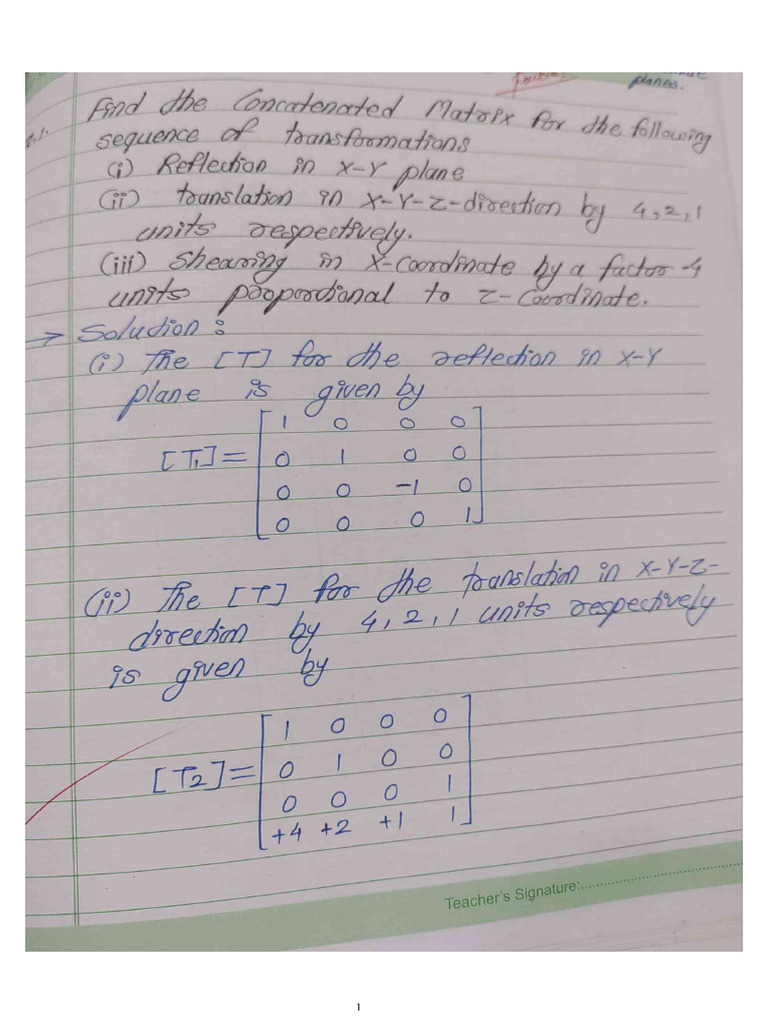 planes.
Q.1. Find the Concatenated Matrix for the following
sequence of transformations
(i) Reflection in X-Y plane
(ii) translation in X-Y-Z-direction by 4,2,1
units respectively.
(iii) Shearing in X-coordinate by a factor -4
units propordional to Z-coordinate.
→ Solution :
(i) The [T] for the reflection in X-Y
plane is given by
[T₁] =
1 0 0 0
0 1 0 0
0 0 -1 0
0 0 0 1
(ii) The [T] for the translation in X-Y-Z-
direction by 4,2,1 units respectively
is given by
[T2] =
1 0 0 0
0 1 0 0
0 0 0 1
+4 +2 +1 1
Teacher's Signature:
1